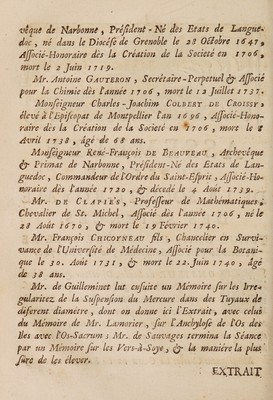 vêque de Narbonne, Président-Né des Etats de Langue-
doc, né dans le Diocése de Grenoble le 28 Octobre 1647,
Associé-Honoraire dès la Création de la Societé en 1706,
mort le 2 Juin 1719.
Mr. Antoine GAUTERON, Secrétaire-Perpetuel & Associé
pour la Chimie dès l'année 1706, mort le 12 Juillet 1737.
Monseigneur Charles-Joachim COLBERT DE CROISSY
élevé à l'Episcopat de Montpellier l'an 1696, Associé-Hono-
raire dès la Création de la Societé en 1706, mors le 8
Avril 1738, âgé de 68 ans.
Monseigneur René-François DE BEAUVEAU, Archevêque
& Primat de Narbonne, Président-Né des Etats de Lan-
guedoc, Commandeur de l'Ordre du Saint-Esprit, Associé-Ho-
noraire dès l'année 1720, & décedé le 4 Août 1739.
Mr. DE CLAPIE'S, Professeur de Mathématiques,
Chevalier de St. Michel, Associé dès l'année 1706, né le
28 Août 1670, & mort le 19 Février 1740.
Mr. François CHICOYNEAU fils, Chancelier en Survi-
vance de l'Université de Médecine, Associé pour la Botani-
que le 30. Août 1731, & mort le 22. Juin 1740, âgé
de 38 ans.
Mr. de Guilleminet lut ensuite un Mémoire sur les Irre-
gularitez de la Suspension du Mercure dans des Tuyaux de
diferent diamétre, dont on donne ici l'Extrait, avec celui
du Mémoire de Mr. Lamorier, sur l'Anchylose de l'Os des
Iles avec l'Os-Sacrum; Mr. de Sauvages termina la Séance
par un Mémoire sur les Vers-à-Soye, & la maniére la plus
sûre de les élever.
EXTRAIT